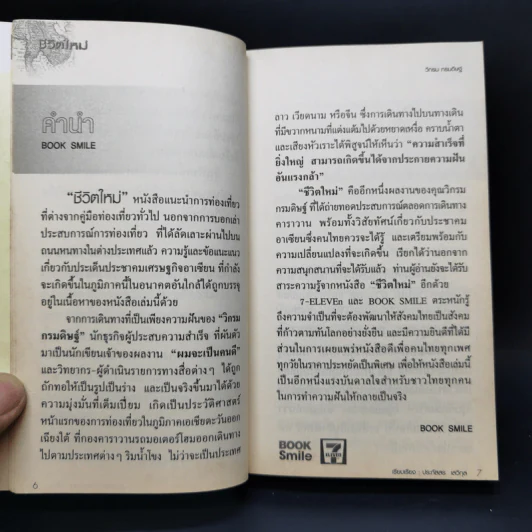 ชีวิตใหม่
คำนำ
BOOK SMILE
"ชีวิตใหม่" หนังสือแนะนำการท่องเที่ยว
ที่ต่างจากคู่มือท่องเที่ยวทั่วไป นอกจากการบอกเล่า
ประสบการณ์การท่องเที่ยว ที่ได้ลัดเลาะผ่านไปบน
ถนนหนทางในต่างประเทศแล้ว ความรู้และข้อแนะแนว
เกี่ยวกับประเด็นประชาคมเศรษฐกิจอาเซียน ที่กำลัง
จะเกิดขึ้นในภูมิภาคนี้ในอนาคตอันใกล้ได้ถูกบรรจุ
อยู่ในเนื้อหาของหนังสือเล่มนี้ด้วย
จากการเดินทางที่เป็นเพียงความฝันของ "วิกรม
กรมดิษฐ์" นักธุรกิจผู้ประสบความสำเร็จ ที่ผันตัว
มาเป็นนักเขียนเจ้าของผลงาน "ผมจะเป็นคนดี"
และวิทยากร-ผู้ดำเนินรายการทางสื่อต่างๆ ได้ถูก
ถักทอให้เป็นรูปเป็นร่าง และเป็นจริงขึ้นมาได้ด้วย
ความมุ่งมั่นที่เต็มเปี่ยม เกิดเป็นประวัติศาสตร์
หน้าแรกของการท่องเที่ยวในภูมิภาคเอเชียตะวันออก
เฉียงใต้ ที่กองคาราวานรถมอเตอร์โฮมออกเดินทาง
ไปตามประเทศต่างๆ ริมน้ำโขง ไม่ว่าจะเป็นประเทศ
6
วิกรม กรมดิษฐ์
ลาว เวียดนาม หรือจีน ซึ่งการเดินทางไปบนทางเดิน
ที่มีขวากหนามที่แต่งแต้มไปด้วยหยาดเหงื่อ คราบน้ำตา
และเสียงหัวเราะได้พิสูจน์ให้เห็นว่า "ความสำเร็จที่
ยิ่งใหญ่ สามารถเกิดขึ้นได้จากประกายความฝัน
อันแรงกล้า"
"ชีวิตใหม่" คืออีกหนึ่งผลงานของคุณวิกรม
กรมดิษฐ์ ที่ได้ถ่ายทอดประสบการณ์ตลอดการเดินทาง
คาราวาน พร้อมทั้งวิสัยทัศน์เกี่ยวกับประชาคม
อาเซียนซึ่งคนไทยควรจะได้รู้ และเตรียมพร้อมกับ
ความเปลี่ยนแปลงที่จะเกิดขึ้น เรียกได้ว่านอกจาก
ความสนุกสนานที่จะได้รับแล้ว ท่านผู้อ่านยังจะได้รับ
สาระความรู้จากหนังสือ "ชีวิตใหม่" อีกด้วย
7-ELEVEn และ BOOK SMILE ตระหนักรู้
ถึงความจำเป็นที่จะต้องพัฒนาให้สังคมไทยเป็นสังคม
ที่ก้าวตามทันโลกอย่างยั่งยืน และมีความยินดีที่ได้มี
ส่วนในการเผยแพร่หนังสือดีเพื่อคนไทยทุกเพศ
ทุกวัยในราคาประหยัดเป็นพิเศษ เพื่อให้หนังสือเล่มนี้
เป็นอีกหนึ่งแรงบันดาลใจสำหรับชาวไทยทุกคน
ในการทำความฝันให้กลายเป็นจริง
BOOK SMILE
BOOK
Smile
7
ELEVEn
เรียบเรียง : ประภัสสร เสวิกุล 7